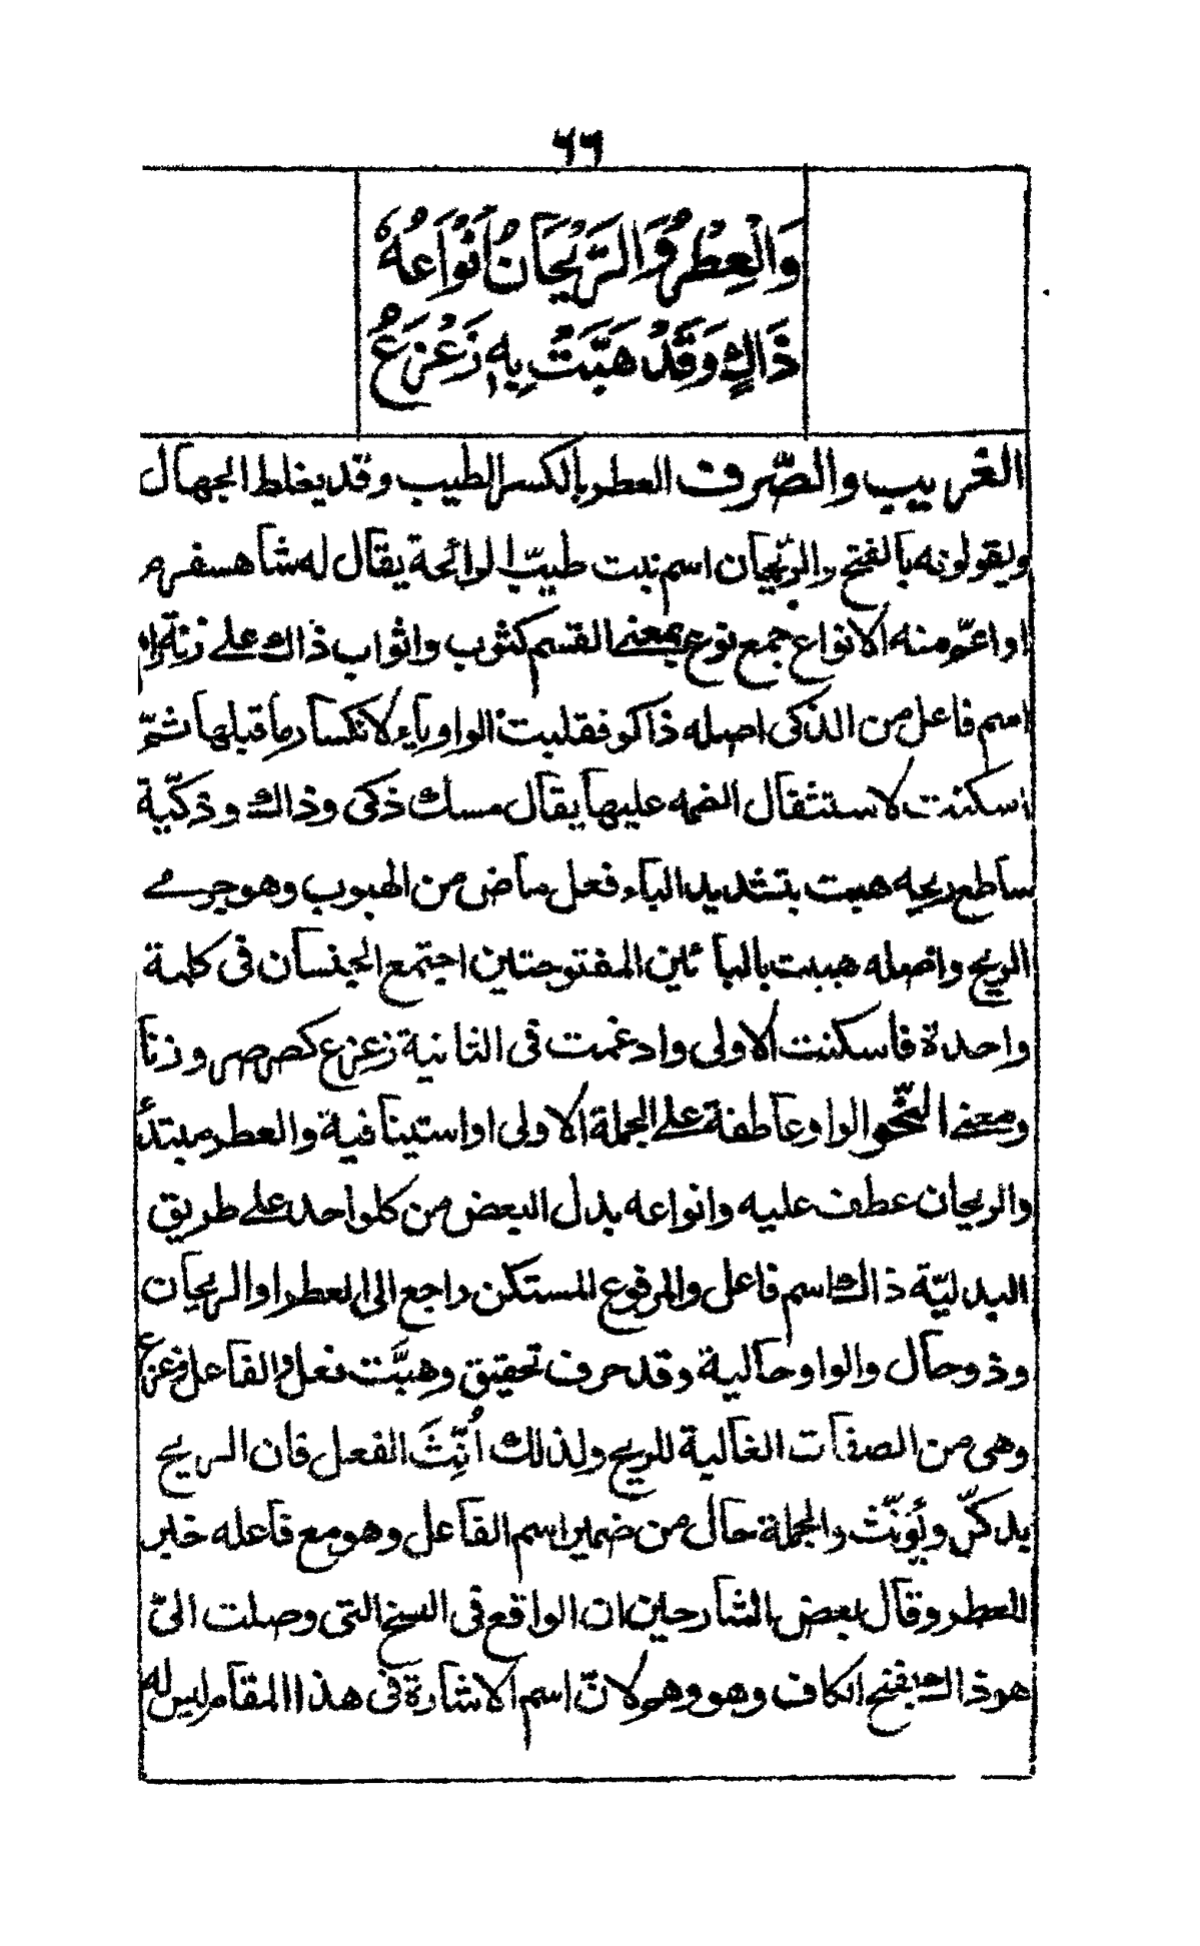 ٦٦
وَالْعِطْرُ وَالرَّيْحَانُ أَنْوَاعُهُ
ذَاكٍ وَقَدْ هَبَّتْ بِهِ زَعْزَعُ
الغريب والصّرف العطر بالكسر الطيب وقد يغلط الجهال
ويقولونه بالفتح والرّيحان اسم نبت طيّب الرائحة يقال له شاهسفرم
او اعمّ منه الانواع جمع نوع بمعنى القسم كثوب واثواب ذاك على زنة رام
اسم فاعل من الذكى اصله ذاكو فقلبت الواو ياء لانكسار ما قبلها ثمّ
اسكنت لاستثقال الضمه عليها يقال مسك ذكى وذاك وذكيّة
ساطع ريحه هبت بتشديد الباء فعل ماض من الهبوب وهو جرى
الريح واصله هببت بالبائين المفتوحتين اجتمع الجنسان فى كلمة
واحدة فاسكنت الاولى وادغمت فى الثانية زعزع كصرصر وزنا
ومعنى النّحو الواو عاطفة على الجملة الاولى او استينافية والعطر مبتدأ
والريحان عطف عليه وانواعه بدل البعض من كل واحد على طريق
البدليّة ذاك اسم فاعل والمرفوع المستكن راجع الى العطر او الريحان
وذو حال والواو حالية وقد حرف تحقيق وهبَّت فعل والفاعل زعزع
وهى من الصفات الغالبة للريح ولذلك أُنِّثَ الفعل فان الريح
يذكّر ويؤنّث والجملة حال من ضمير اسم الفاعل وهو مع فاعله خبر
للعطر وقال بعض الشارحين ان الواقع فى النسخ التى وصلت الىّ
هو ذاك بفتح الكاف وهو وهم لانّ اسم الاشارة فى هذا المقام ليس له